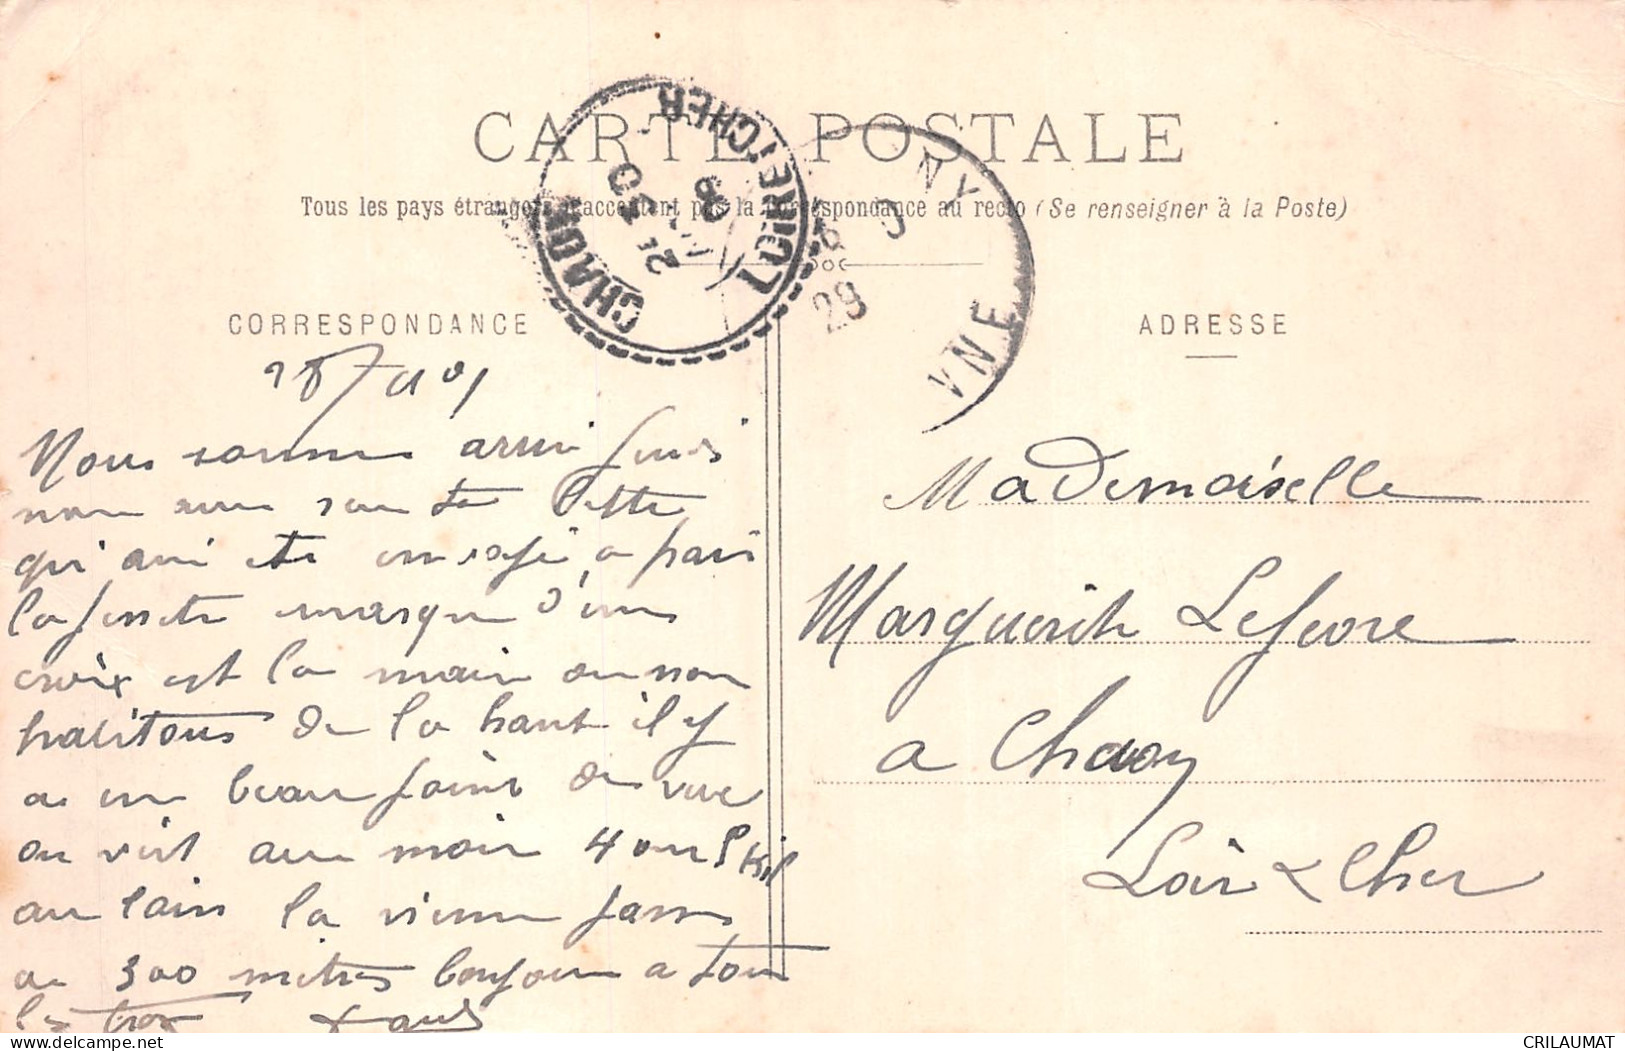 CARTE POSTALE
Tous les pays étrangers n'acceptent pas la correspondance au recto (Se renseigner à la Poste)
CHAON
LOIR-ET-CHER
NY
VNE
29
CORRESPONDANCE
ADRESSE
Nous sommes arrivi
non sans
qui a a pari
la fenetre marque d'une
croix est la maison ou nous
habitons de la haut il y
a un beau point de vue
on voit au moin 4 ou 5 kil
au loin la vienne passe
a 300 mètres bonjour a tous
les trois
Mademoiselle
Marguerite Lefevre
a Chaon
Loir & Cher
CRILAUMAT
delcampe.net